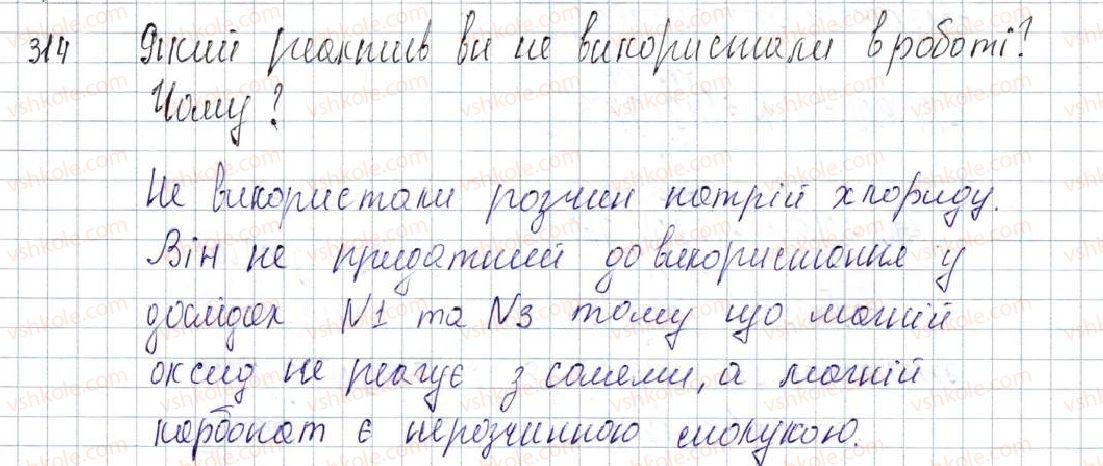 314 Який реактив ви не використали в роботі?
Чому?
Не використали розчин натрій хлориду.
Він не придатний до використання у
дослідах №1 та №3 тому що магній
оксид не реагує з солями, а магній
карбонат є нерозчинною сполукою.